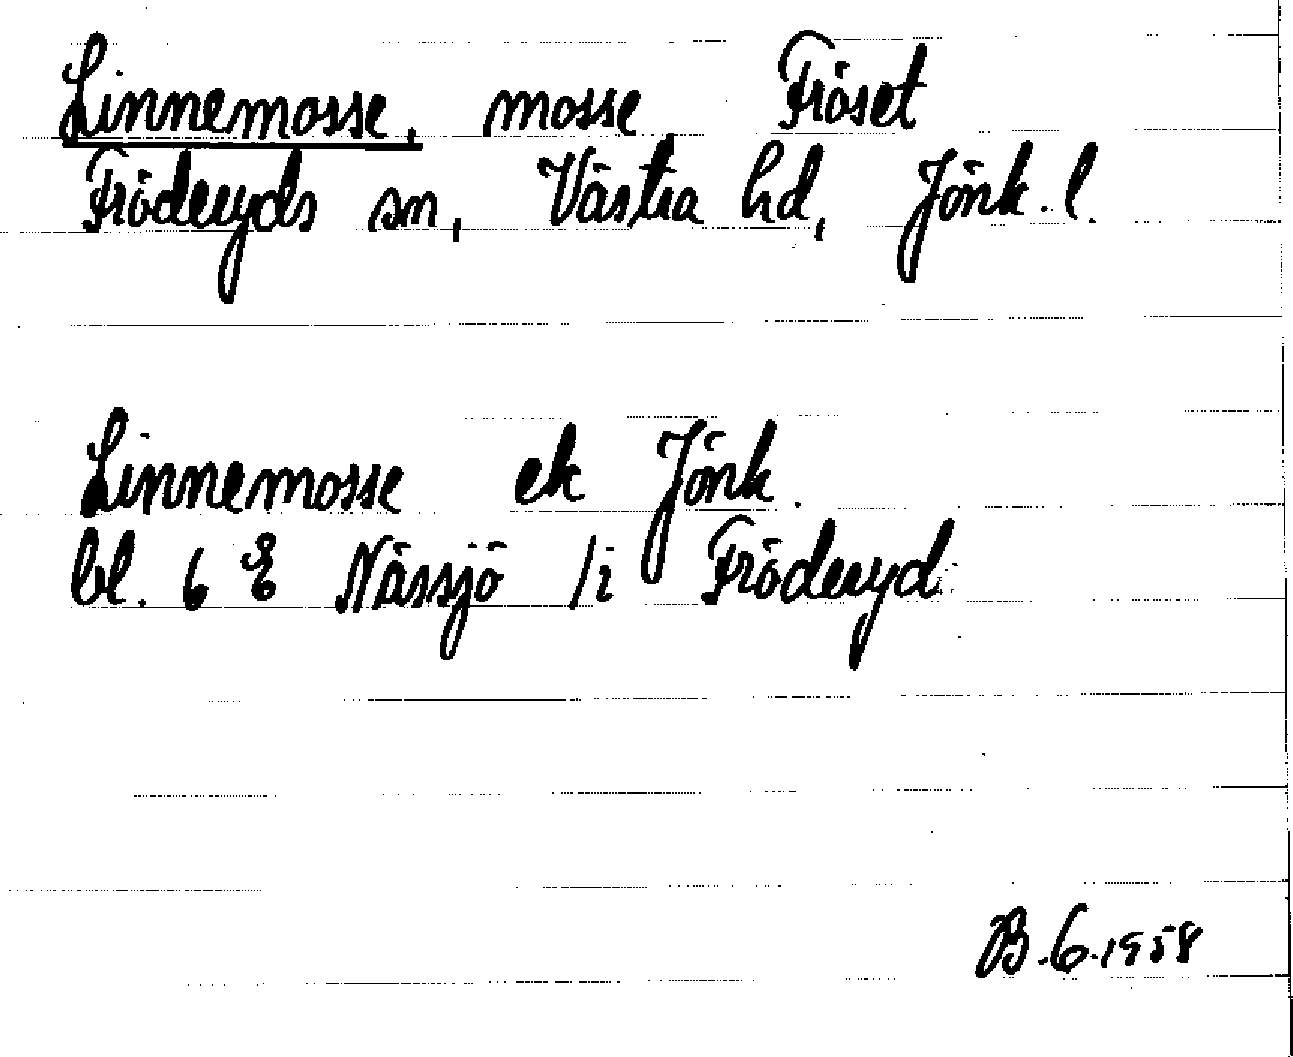 Linnemosse, mosse Fröset
Fröderyds sn, Västra hd, Jönk. l.
Linnemosse ek Jönk.
bl. 6 E Nässjö /i Fröderyd
B.G.1958